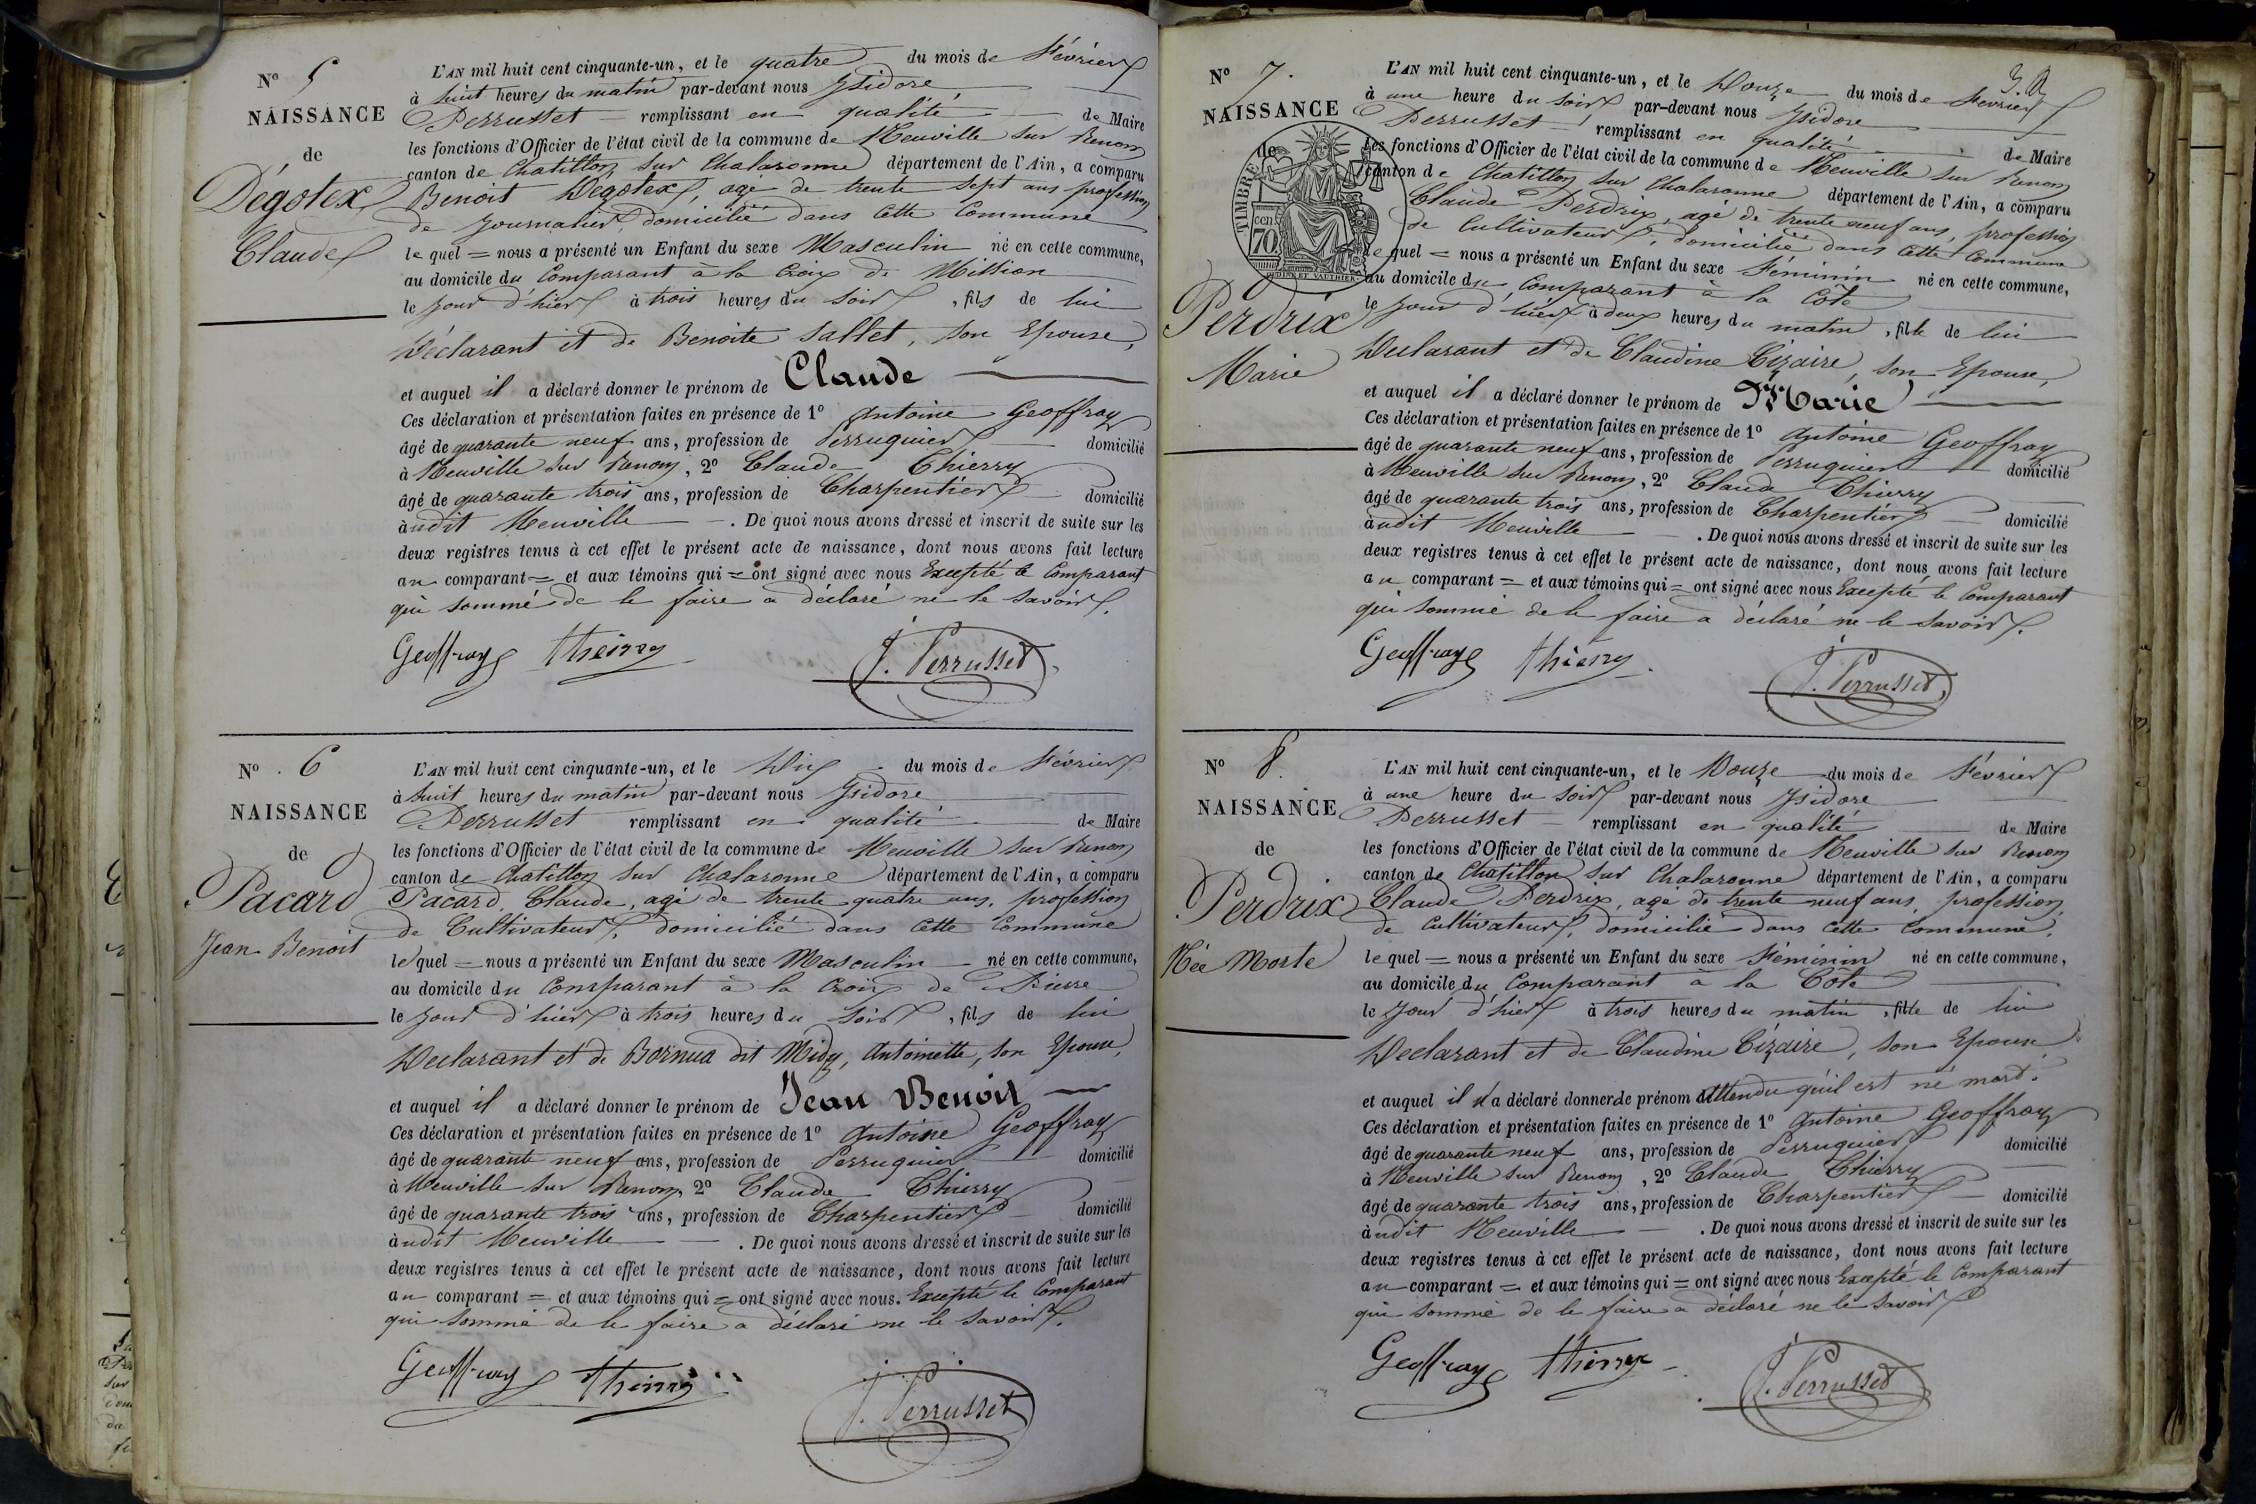 N° 5
NAISSANCE
de
Dégotex
Claude
L'AN mil huit cent cinquante-un, et le quatre du mois de Février
à huit heures du matin par-devant nous Ysidore
Perrusset remplissant en qualité de Maire
les fonctions d'Officier de l'état civil de la commune de Neuville sur Renom
canton de Chatillon sur Chalaronne département de l'Ain, a comparu
Benoit Dégotex, agé de trente sept ans profession
de Journalier, domicilié dans cette Commune
lequel = nous a présenté un Enfant du sexe Masculin né en cette commune,
au domicile du Comparant à la Croix de Mission
le jour d'hier à trois heures du soir, fils de lui
Déclarant et de Benoite Sallet, son Epouse,
et auquel il a déclaré donner le prénom de Claude
Ces déclaration et présentation faites en présence de 1° Antoine Geoffray
âgé de quarante neuf ans, profession de Perruquier domicilié
à Neuville sur Renom, 2° Claude Thierry
âgé de quarante trois ans, profession de Charpentier domicilié
audit Neuville . De quoi nous avons dressé et inscrit de suite sur les
deux registres tenus à cet effet le présent acte de naissance, dont nous avons fait lecture
au comparant = et aux témoins qui = ont signé avec nous Excepté le Comparant
qui sommé de le faire a déclaré ne le savoir.
Geoffray Thierry J. Perrusset
N° 6
NAISSANCE
de
Pacard
Jean Benoit
L'AN mil huit cent cinquante-un, et le Dix du mois de Février
à huit heures du matin par-devant nous Ysidore
Perrusset remplissant en qualité de Maire
les fonctions d'Officier de l'état civil de la commune de Neuville sur Renom
canton de Chatillon sur Chalaronne département de l'Ain, a comparu
Pacard, Claude, agé de trente quatre ans, profession
de Cultivateur, domicilié dans cette Commune
lequel = nous a présenté un Enfant du sexe Masculin né en cette commune,
au domicile du Comparant à la Croix de Pierre
le jour d'hier à trois heures du soir, fils de lui
Déclarant et de Bornua dit Midy, Antoinette, son Epouse,
et auquel il a déclaré donner le prénom de Jean Benoit
Ces déclaration et présentation faites en présence de 1° Antoine Geoffray
âgé de quarante neuf ans, profession de Perruquier domicilié
à Neuville sur Renom, 2° Claude Thierry
âgé de quarante trois ans, profession de Charpentier domicilié
audit Neuville . De quoi nous avons dressé et inscrit de suite sur les
deux registres tenus à cet effet le présent acte de naissance, dont nous avons fait lecture
au comparant = et aux témoins qui = ont signé avec nous. Excepté le Comparant
qui sommé de le faire a déclaré ne le savoir.
Geoffray Thierry J. Perrusset
N° 7.
NAISSANCE
de
TIMBRE
cen 70
Perdrix
Marie
L'AN mil huit cent cinquante-un, et le Douze du mois de Février
à une heure du soir par-devant nous Ysidore
Perrusset remplissant en qualité de Maire
les fonctions d'Officier de l'état civil de la commune de Neuville sur Renom
canton de Chatillon sur Chalaronne département de l'Ain, a comparu
Claude Perdrix, agé de trente neuf ans, profession
de Cultivateur, domicilié dans cette Commune
lequel = nous a présenté un Enfant du sexe Féminin né en cette commune,
au domicile du Comparant à la Côte
le jour d'hier à deux heures du matin, fille de lui
Déclarant et de Claudine Cizaire, son Epouse,
et auquel il a déclaré donner le prénom de Marie
Ces déclaration et présentation faites en présence de 1° Antoine Geoffray
âgé de quarante neuf ans, profession de Perruquier domicilié
à Neuville sur Renom, 2° Claude Thierry
âgé de quarante trois ans, profession de Charpentier domicilié
audit Neuville . De quoi nous avons dressé et inscrit de suite sur les
deux registres tenus à cet effet le présent acte de naissance, dont nous avons fait lecture
au comparant = et aux témoins qui = ont signé avec nous Excepté le Comparant
qui sommé de le faire a déclaré ne le savoir.
Geoffray Thierry J. Perrusset
N° 8.
NAISSANCE
de
Perdrix
Née Morte
L'AN mil huit cent cinquante-un, et le Douze du mois de Février
à une heure du soir par-devant nous Ysidore
Perrusset remplissant en qualité de Maire
les fonctions d'Officier de l'état civil de la commune de Neuville sur Renom
canton de Chatillon sur Chalaronne département de l'Ain, a comparu
Claude Perdrix, agé de trente neuf ans, profession
de Cultivateur, domicilié dans cette Commune,
lequel = nous a présenté un Enfant du sexe Féminin né en cette commune,
au domicile du Comparant à la Côte
le jour d'hier à trois heures du matin, fille de lui
Déclarant et de Claudine Cizaire, son Epouse
et auquel il n'a déclaré donner de prénom attendu qu'il est né mort.
Ces déclaration et présentation faites en présence de 1° Antoine Geoffray
âgé de quarante neuf ans, profession de Perruquier domicilié
à Neuville sur Renom, 2° Claude Thierry
âgé de quarante trois ans, profession de Charpentier domicilié
audit Neuville . De quoi nous avons dressé et inscrit de suite sur les
deux registres tenus à cet effet le présent acte de naissance, dont nous avons fait lecture
au comparant = et aux témoins qui = ont signé avec nous Excepté le Comparant
qui sommé de le faire a déclaré ne le savoir
Geoffray Thierry J. Perrusset